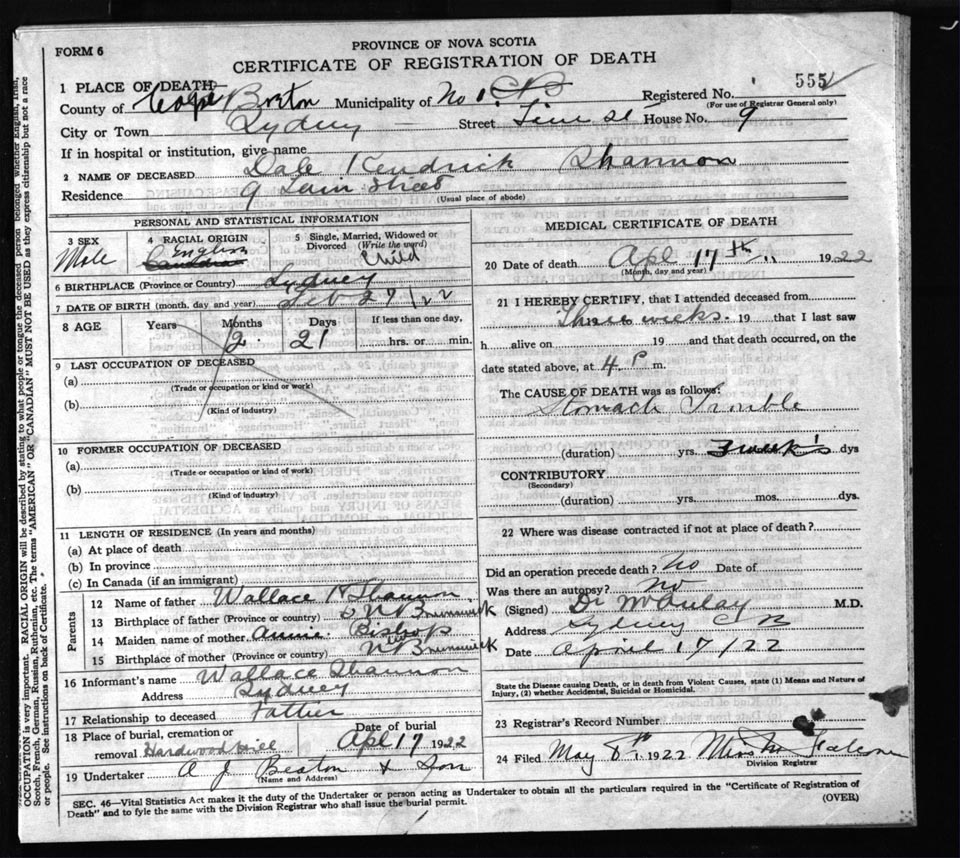 FORM 6
PROVINCE OF NOVA SCOTIA
CERTIFICATE OF REGISTRATION OF DEATH
1 PLACE OF DEATH
Registered No. 555
(For use of Registrar General only)
County of Cape Breton Municipality of No 1. C B
City or Town Sydney Street House No. 9
If in hospital or institution, give name
2 NAME OF DECEASED Dale Kendrick Shannon
Residence 9 Street
(Usual place of abode)
PERSONAL AND STATISTICAL INFORMATION
3 SEX Male
4 RACIAL ORIGIN English
5 Single, Married, Widowed or Divorced (Write the word) Child
6 BIRTHPLACE (Province or Country) Sydney
7 DATE OF BIRTH (month, day and year) Feb 27/22
8 AGE Years Months Days If less than one day,
2 21 hrs. or min.
9 LAST OCCUPATION OF DECEASED
(a)
(Trade or occupation or kind or work)
(b)
(Kind of industry)
10 FORMER OCCUPATION OF DECEASED
(a)
(Trade or occupation or kind of work)
(b)
(Kind of industry)
11 LENGTH OF RESIDENCE (In years and months)
(a) At place of death
(b) In province
(c) In Canada (if an immigrant)
Parents
12 Name of father Wallace H Shannon
13 Birthplace of father (Province or country) N Brunswick
14 Maiden name of mother Annie Bishop
15 Birthplace of mother (Province or country) N Brunswick
16 Informant's name Wallace Shannon
Address Sydney
17 Relationship to deceased Father
18 Place of burial, cremation or removal Hardwood Hill
Date of burial Apl 17 1922
19 Undertaker A J Beaton & Son
(Name and Address)
MEDICAL CERTIFICATE OF DEATH
20 Date of death Apl 17th 1922
(Month, day and year)
21 I HEREBY CERTIFY, that I attended deceased from
Three weeks. 19 that I last saw
h alive on 19 and that death occurred, on the
date stated above, at 4 P m.
The CAUSE OF DEATH was as follows:
Stomach Trouble
(duration) yrs. 3 weeks dys
CONTRIBUTORY
(Secondary)
(duration) yrs. mos. dys.
22 Where was disease contracted if not at place of death?
Did an operation precede death? No Date of
Was there an autopsy? No
(Signed) Dr McAulay M.D.
Address Sydney C B
Date April 17/22
State the Disease causing Death, or in death from Violent Causes, state (1) Means and Nature of
Injury, (2) whether Accidental, Suicidal or Homicidal.
23 Registrar's Record Number
24 Filed May 8th 1922
Division Registrar
SEC. 46—Vital Statistics Act makes it the duty of the Undertaker or person acting as Undertaker to obtain all the particulars required in the "Certificate of Registration of
Death" and to fyle the same with the Division Registrar who shall issue the burial permit.
(OVER)
OCCUPATION is very important. RACIAL ORIGIN will be described by stating to what people or tongue the deceased person belonged whether English, Irish,
Scotch, French, German, Russian, Ruthenian, etc. The terms "AMERICAN" OR "CANADIAN" MUST NOT BE USED as they express citizenship but not a race
or people. See instructions on back of Certificate.